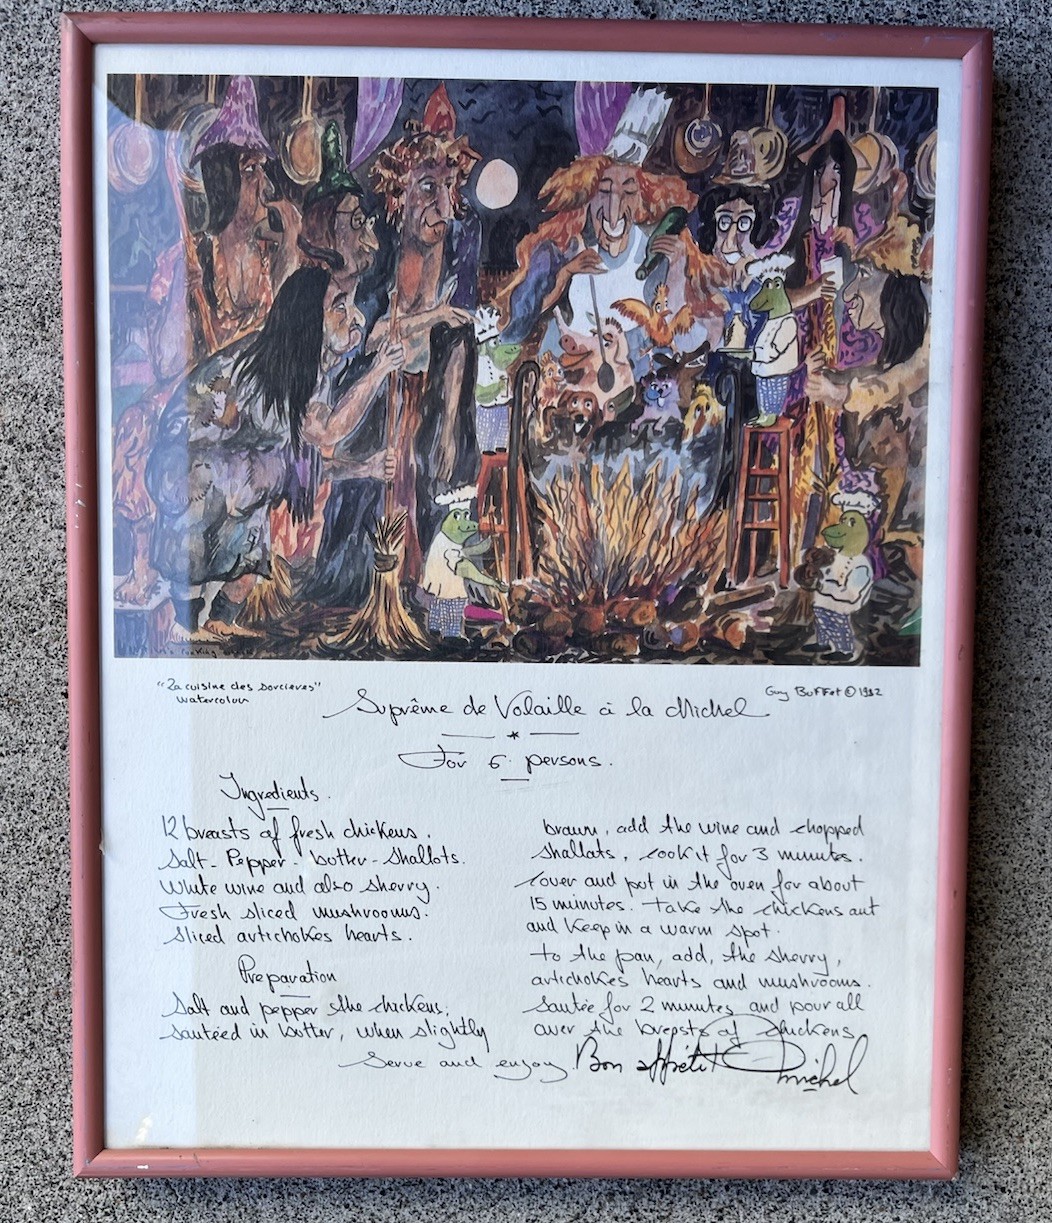 "La cuisine des sorcieres"
watercolour
Guy Buffet © 1982
Suprême de Volaille à la Michel
For 6 persons.
Ingredients.
12 breasts of fresh chickens.
Salt - Pepper - butter - Shallots.
White wine and also sherry.
Fresh sliced mushrooms.
Sliced artichokes hearts.
Preparation
Salt and pepper the chickens,
sautéed in butter, when slightly
brown, add the wine and chopped
shallots, cook it for 3 minutes.
Cover and put in the oven for about
15 minutes. Take the chickens out
and keep in a warm spot.
to the pan, add, the sherry,
artichokes hearts and mushrooms.
Sautée for 2 minutes and pour all
over the breasts of chickens
Serve and enjoy. Bon appétit Michel